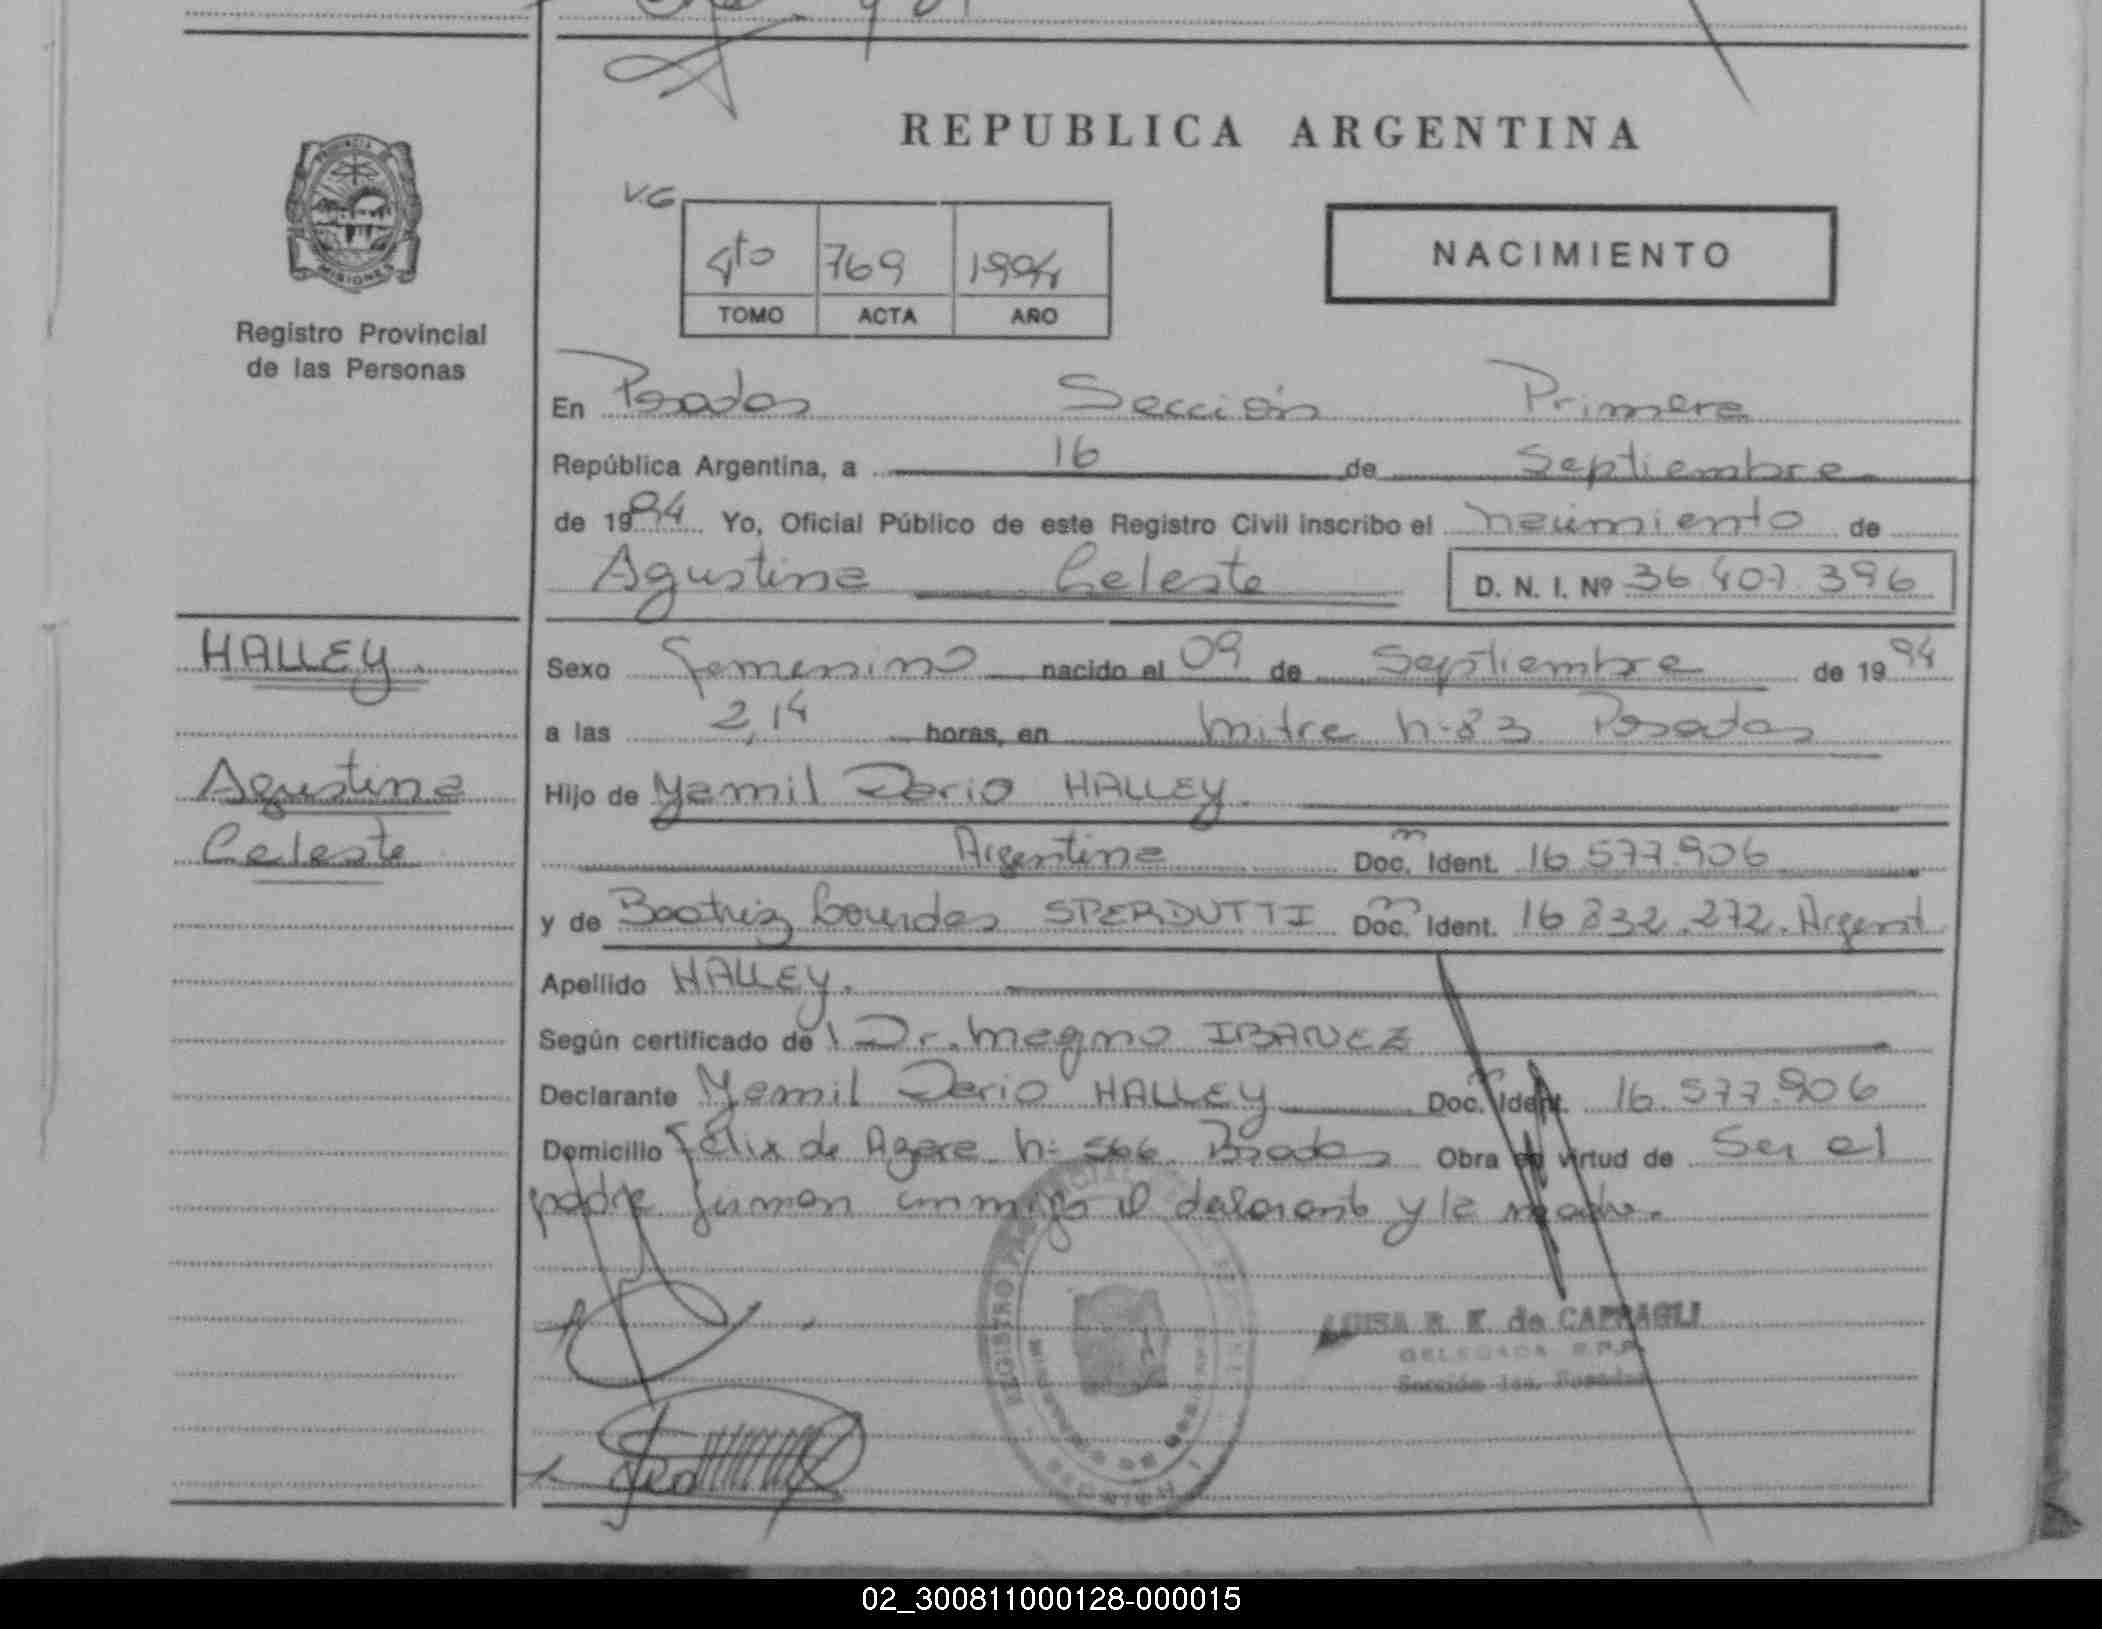 REPUBLICA ARGENTINA
PROVINCIA DE
MISIONES
Registro Provincial
de las Personas
V.G
4to 769 1994
TOMO ACTA AÑO
NACIMIENTO
En Posadas Sección Primera
República Argentina, a 16 de Septiembre
de 1994 Yo, Oficial Público de este Registro Civil inscribo el nacimiento de
Agustina Celeste D. N. I. Nº 36 407 396
HALLEY
Agustina
Celeste
Sexo Femenino nacido el 09 de Septiembre de 1994
a las 2,14 horas, en Mitre n-83 Posadas
Hijo de Yamil Dario HALLEY.
Argentina Doc. Ident. 16 577.906
y de Beatriz Lourdes SPERDUTTI Doc. Ident. 16 832.272. Argent
Apellido HALLEY.
Según certificado de Dr. Magno IBAÑEZ
Declarante Yamil Dario HALLEY Doc. Ident. 16.577.906
Domicilio Félix de Azara n: 566 Posadas Obra en virtud de Ser el
padre firman conmigo el declarante y la madre.
LUISA R. K. de CAPRAGLI
DELEGADA R.P.P.
Sección 1ra. Posadas
02_300811000128-000015